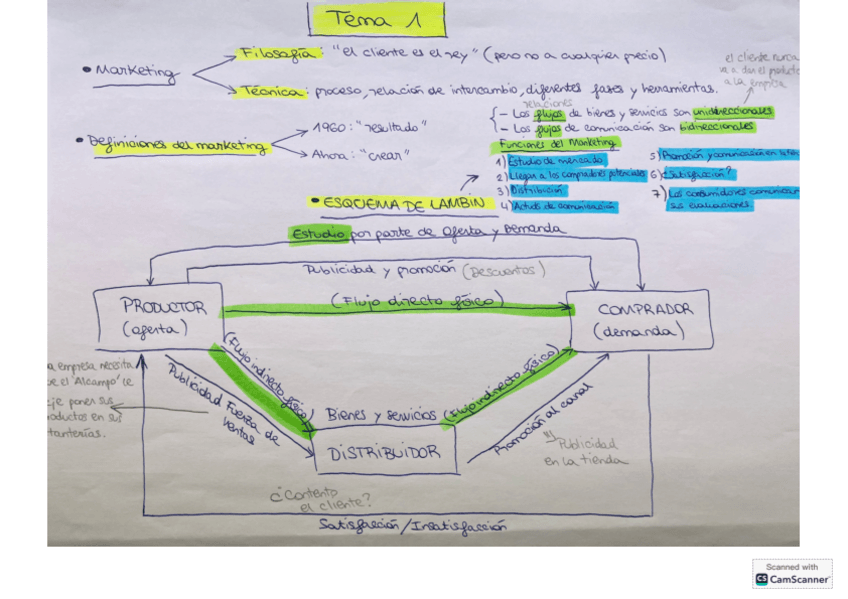 Tema 1
• Marketing
Filosofía: "el cliente es el rey" (pero no a cualquier precio)
Técnica: proceso, relación de intercambio, diferentes fases y herramientas.
el cliente nunca
va a dar el producto
a la empresa
• Definiciones del marketing
1960: "resultado"
Ahora: "crear"
relaciones
- Los flujos de bienes y servicios son unidireccionales
- Los flujos de comunicación son bidireccionales
Funciones del Marketing
1) Estudio de mercado
2) Llegar a los compradores potenciales
3) Distribución
4) Activid. de comunicación
5) Promoción y comunicación en la
6) ¿Satisfacción?
7) Los consumidores comunican
sus evaluaciones
• ESQUEMA DE LAMBIN
Estudio por parte de oferta y Demanda
Publicidad y promoción (Descuentos)
PRODUCTOR
(oferta)
(Flujo directo físico)
COMPRADOR
(demanda)
(Flujo indirecto físico)
Publicidad Fuerza de
ventas
a empresa necesita
ue el 'Alcampo' le
je poner sus
oductos en sus
tanterías.
Bienes y servicios (Flujo indirecto físico)
DISTRIBUIDOR
Promoción al canal
Publicidad
en la tienda
¿Contento
el cliente?
Satisfacción/Insatisfacción
Scanned with
CS CamScanner